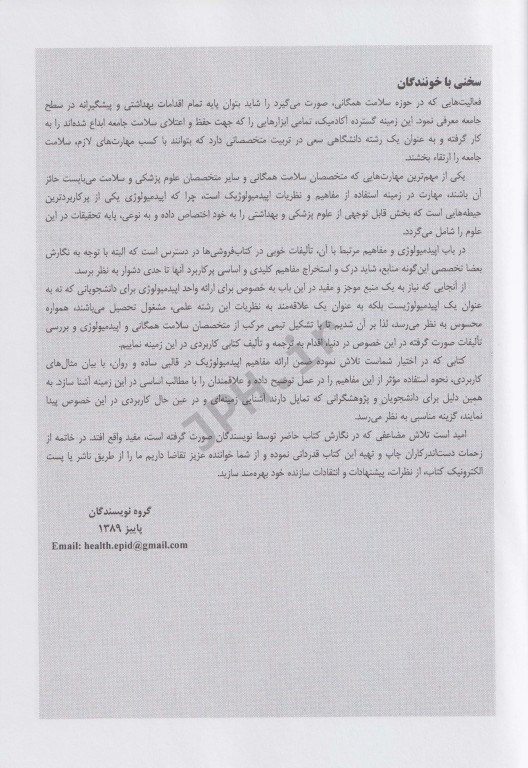 سخنی با خونندگان
فعالیت‌هایی که در حوزه سلامت همگانی، صورت می‌گیرد را شاید بتوان پایه تمام اقدامات بهداشتی و پیشگیرانه در سطح
جامعه معرفی نمود. این زمینه گسترده آکادمیک، تمامی ابزارهایی را که جهت حفظ و اعتلای سلامت جامعه ابداع شده‌اند را به
کار گرفته و به عنوان یک رشته دانشگاهی سعی در تربیت متخصصانی دارد که بتوانند با کسب مهارت‌های لازم، سلامت
جامعه را ارتقاء بخشند.
یکی از مهم‌ترین مهارت‌هایی که متخصصان سلامت همگانی و سایر متخصصان علوم پزشکی و سلامت می‌بایست حائز
آن باشند، مهارت در زمینه استفاده از مفاهیم و نظریات اپیدمیولوژیک است، چرا که اپیدمیولوژی یکی از پرکاربردترین
حیطه‌هایی است که بخش قابل توجهی از علوم پزشکی و بهداشتی را به خود اختصاص داده و به نوعی، پایه تحقیقات در این
علوم را شامل می‌گردد.
در باب اپیدمیولوژی و مفاهیم مرتبط با آن، تألیفات خوبی در کتاب‌فروشی‌ها در دسترس است که البته با توجه به نگارش
بعضا تخصصی این‌گونه منابع، شاید درک و استخراج مفاهیم کلیدی و اساسی پرکاربرد آنها تا حدی دشوار به نظر برسد.
از آنجایی که نیاز به یک منبع موجز و مفید در این باب به خصوص برای ارائه واحد اپیدمیولوژی برای دانشجویانی که نه به
عنوان یک اپیدمیولوژیست بلکه به عنوان یک علاقه‌مند به نظریات این رشته علمی، مشغول تحصیل می‌باشند، همواره
محسوس به نظر می‌رسد، لذا بر آن شدیم تا با تشکیل تیمی مرکب از متخصصان سلامت همگانی و اپیدمیولوژی و بررسی
تألیفات صورت گرفته در این خصوص در دنیا، اقدام به ترجمه و تألیف کتابی کاربردی در این زمینه نماییم.
کتابی که در اختیار شماست تلاش نموده ضمن ارائه مفاهیم اپیدمیولوژیک در قالبی ساده و روان، با بیان مثال‌های
کاربردی، نحوه استفاده مؤثر از این مفاهیم را در عمل توضیح داده و علاقمندان را با مطالب اساسی در این زمینه آشنا سازد. به
همین دلیل برای دانشجویان و پژوهشگرانی که تمایل دارند آشنایی زمینه‌ای و در عین حال کاربردی در این خصوص پیدا
نمایند، گزینه مناسبی به نظر می‌رسد.
امید است تلاش مضاعفی که در نگارش کتاب حاضر توسط نویسندگان صورت گرفته است، مفید واقع افتد. در خاتمه از
زحمات دست‌اندرکاران چاپ و تهیه این کتاب قدردانی نموده و از شما خواننده عزیز تقاضا داریم ما را از طریق ناشر یا پست
الکترونیک کتاب، از نظرات، پیشنهادات و انتقادات سازنده خود بهره‌مند سازید.
گروه نویسندگان
پاییز ۱۳۸۹
Email: health.epid@gmail.com